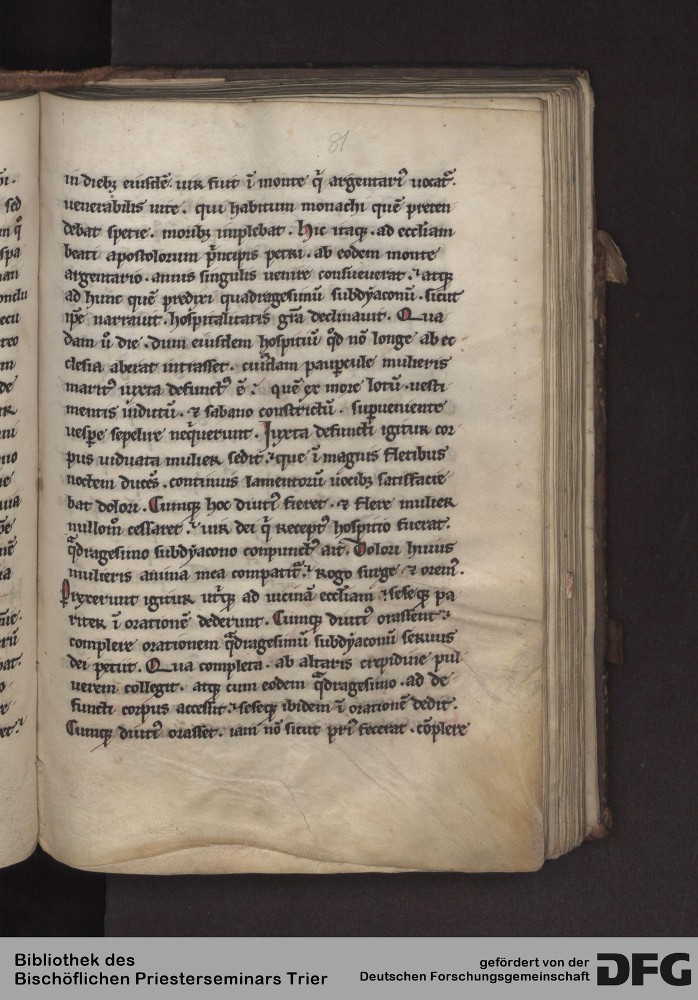 81
in diebꝫ eiusdē. uir fuit ī monte q̄ argentariꝰ uocat᷑.
uenerabilis uite. qui habitum monachi quē preten
debat specie. moribꝫ implebat. Hic itaqꝫ. ad eccliam
beati apostolorum p̄ncipis petri. ab eodem monte
argentario. annis singulis uenire consueuerat. atqꝫ
ad hunc quē predixi quadragesimū subdyaconū. sicut
ip̄e narrauit. hospitalitatis gr̄a declinauit. Qua
dam ū die. dum eiusdem hospitiū qd̄ nō longe ab ec
clesia aberat intrasset. cuiꝰdam paupercule mulieris
maritꝰ iuxta defunctꝰ ē. quē ex more lotū. uesti
mentis īdutū. ⁊ sabano constrictū. sup̄ueniente
uesp̄e sepelire neq̇uerunt. Iuxta defuncti igitur cor
pus uiduata mulier sedit. que ī magnis fletibus
noctem ducēs. continuis lamentorū uocibꝫ satisfacie
bat dolori. Cumqꝫ hoc diutiꝰ fieret. ⁊ flere mulier
nullom̄ cessaret. uir dei q̄ receptꝰ hospitio fuerat.
q̄dragesimo subdyacono conpunctꝰ ait. Dolori huius
mulieris anima mea compatit᷑. rogo surge ⁊ oremꝰ.
Prrexerunt igitur utr̄qꝫ ad uicinā eccliam ⁊ seseqꝫ pa
riter ī orationē dederunt. Cumqꝫ diutiꝰ orassent
complere orationem q̄dragesimū subdyaconū seruus
dei petiit. Qua completa. ab altaris crepidine pul
uerem collegit. atqꝫ cum eodem q̄dragesimo. ad de
functi corpus accessit. seseqꝫ ibidem ī orationē dedit.
Cumqꝫ diutiꝰ orasset. iam nō sicut priꝰ fecerat. cōplere
Bibliothek des
Bischöflichen Priesterseminars Trier
gefördert von der
Deutschen Forschungsgemeinschaft
DFG